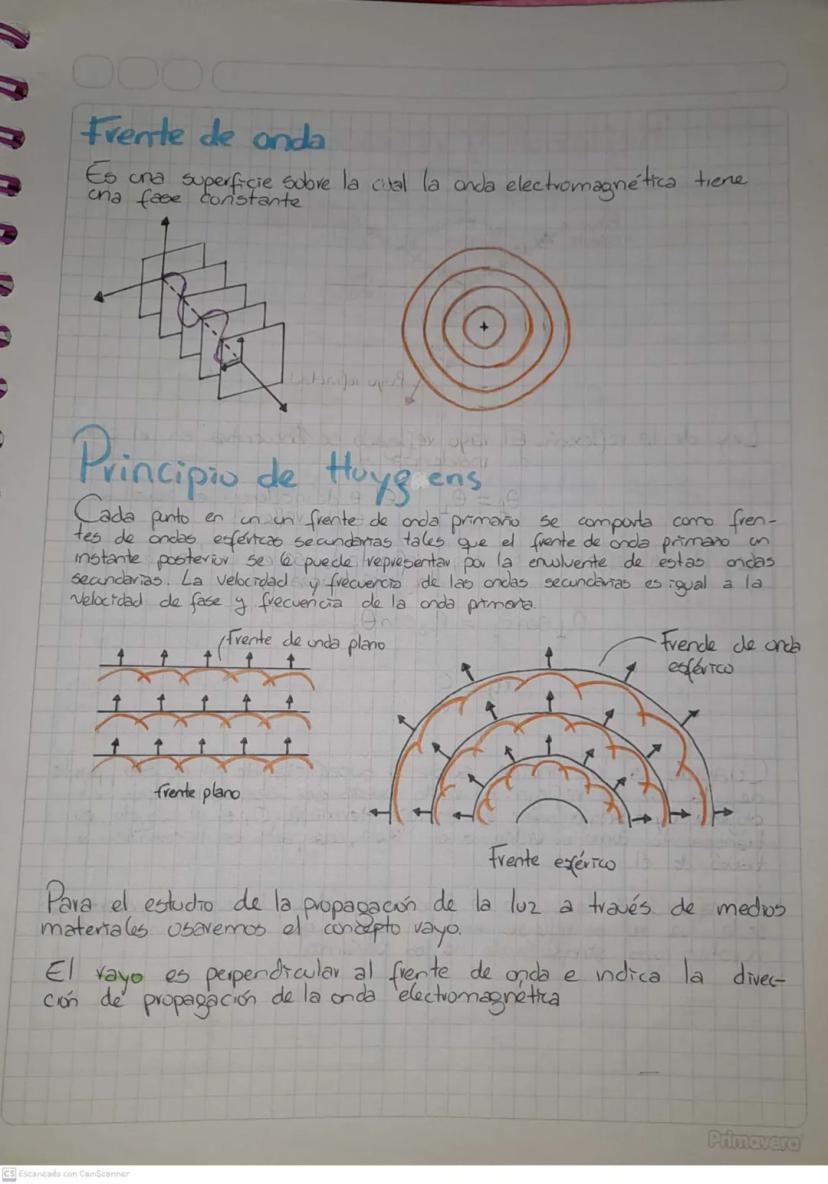 Frente de onda
Es una superficie sobre la cual la onda electromagnética tiene
una fase constante
Principio de Huygens
Cada punto en un un frente de onda primario se comporta como fren-
tes de ondas esféricas secundarias tales que el frente de onda primario un
instante posterior se le puede representar por la envolvente de estas ondas
secundarias. La velocidad y frecuencia de las ondas secundarias es igual a la
velocidad de fase y frecuencia de la onda primaria.
frente de onda plano
Frende de onda
esférico
frente plano
Frente esférico
Para el estudio de la propagación de la luz a través de medios
materiales usaremos el concepto rayo.
El rayo es perpendicular al frente de onda e indica la direc-
ción de propagación de la onda electromagnética
Primavera
CS Escaneado con CamScanner